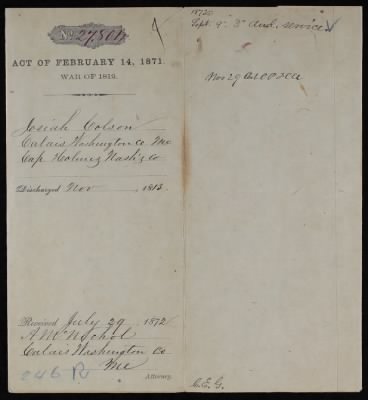 No. 27,801
ACT OF FEBRUARY 14, 1871.
WAR OF 1812.
Josiah Colson
Calais Washington Co. Me
Cap Holmes Nash's Co
Discharged Nov , 1813.
Received July 29 , 1872
A McNichol
Calais Washington Co
Me
Attorney.
1872.
Sept. 9. 3d Aud. service
Nov 29
C.E.G.